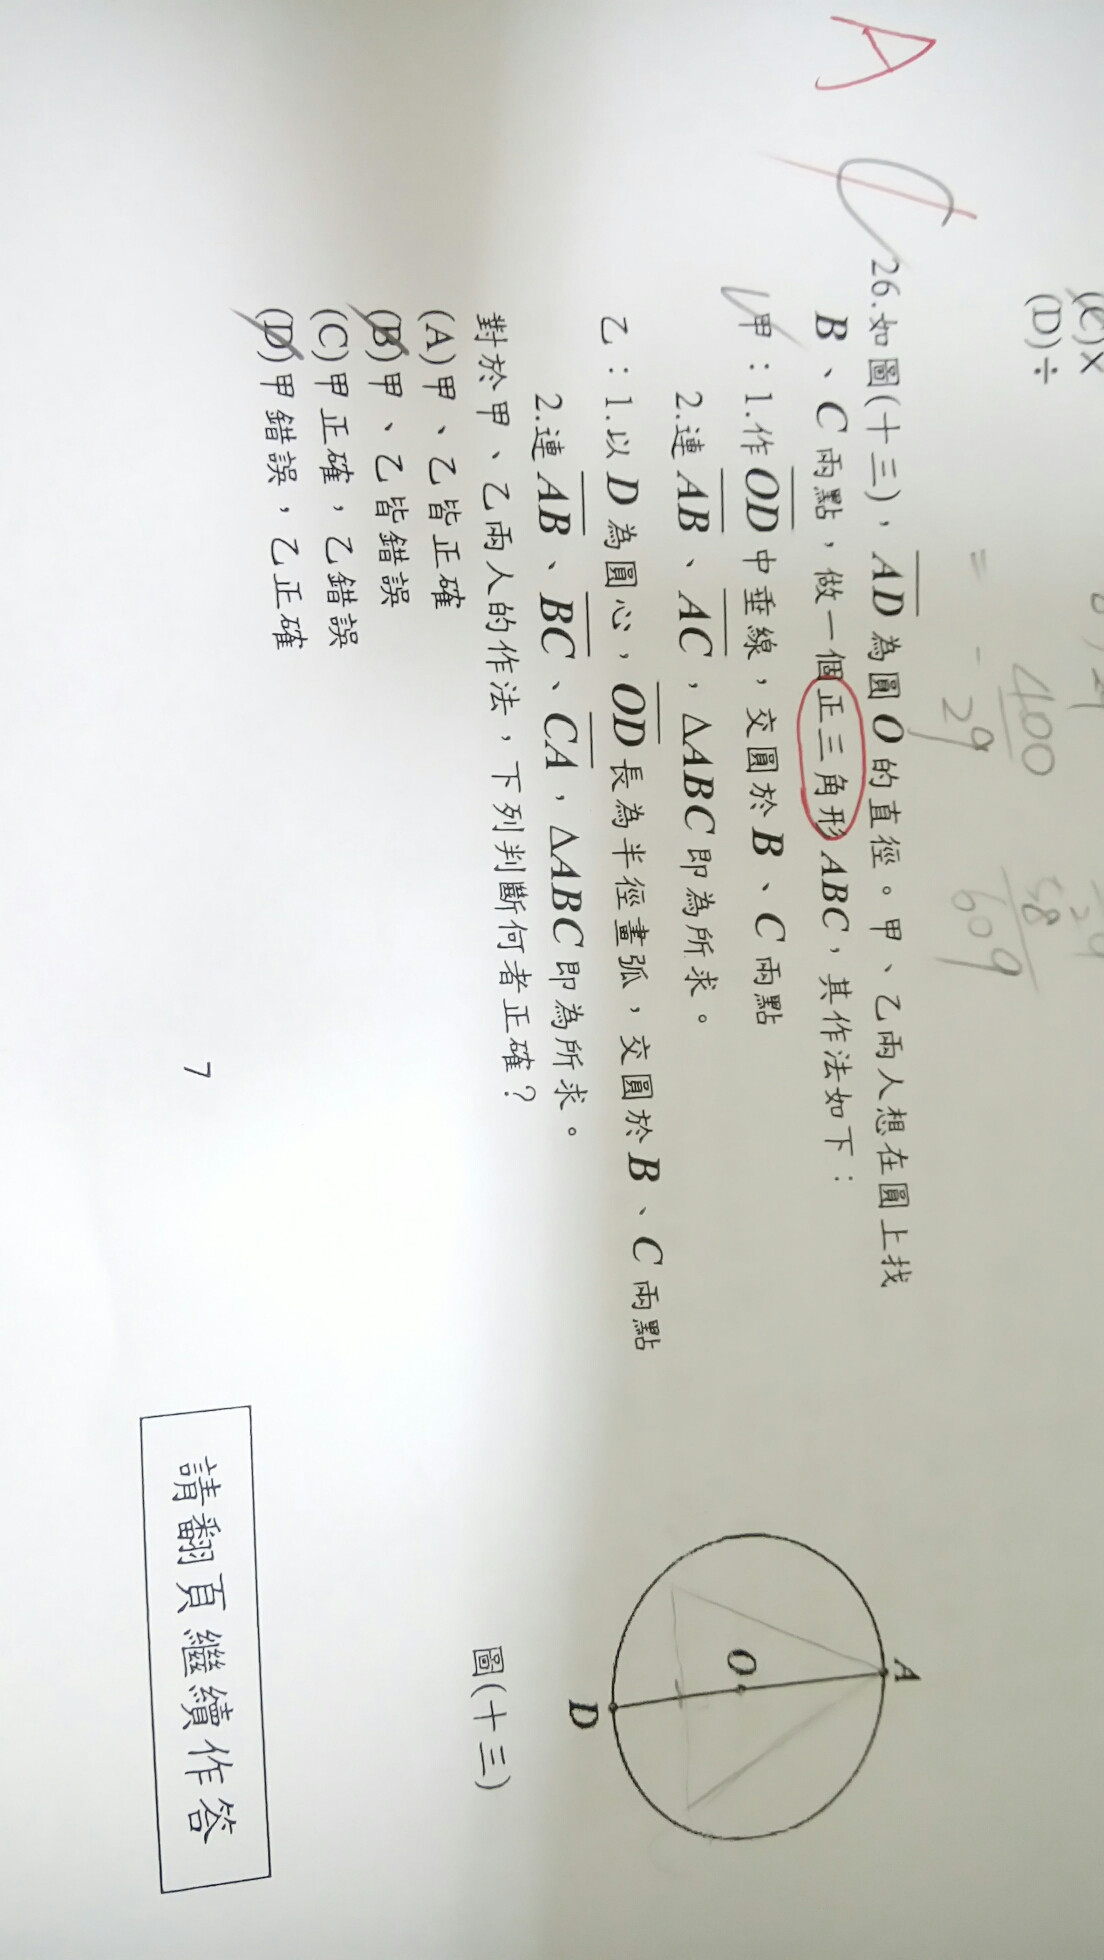 (C)×
(D)÷
400
- 29
58
609
A
C
26.如圖(十三)，AD為圓O的直徑。甲、乙兩人想在圓上找
B、C兩點，做一個正三角形ABC，其作法如下：
甲：1.作OD中垂線，交圓於B、C兩點
2.連AB、AC，△ABC即為所求。
乙：1.以D為圓心，OD長為半徑畫弧，交圓於B、C兩點
2.連AB、BC、CA，△ABC即為所求。
對於甲、乙兩人的作法，下列判斷何者正確？
(A)甲、乙皆正確
(B)甲、乙皆錯誤
(C)甲正確，乙錯誤
(D)甲錯誤，乙正確
A
O
D
圖(十三)
7
請翻頁繼續作答